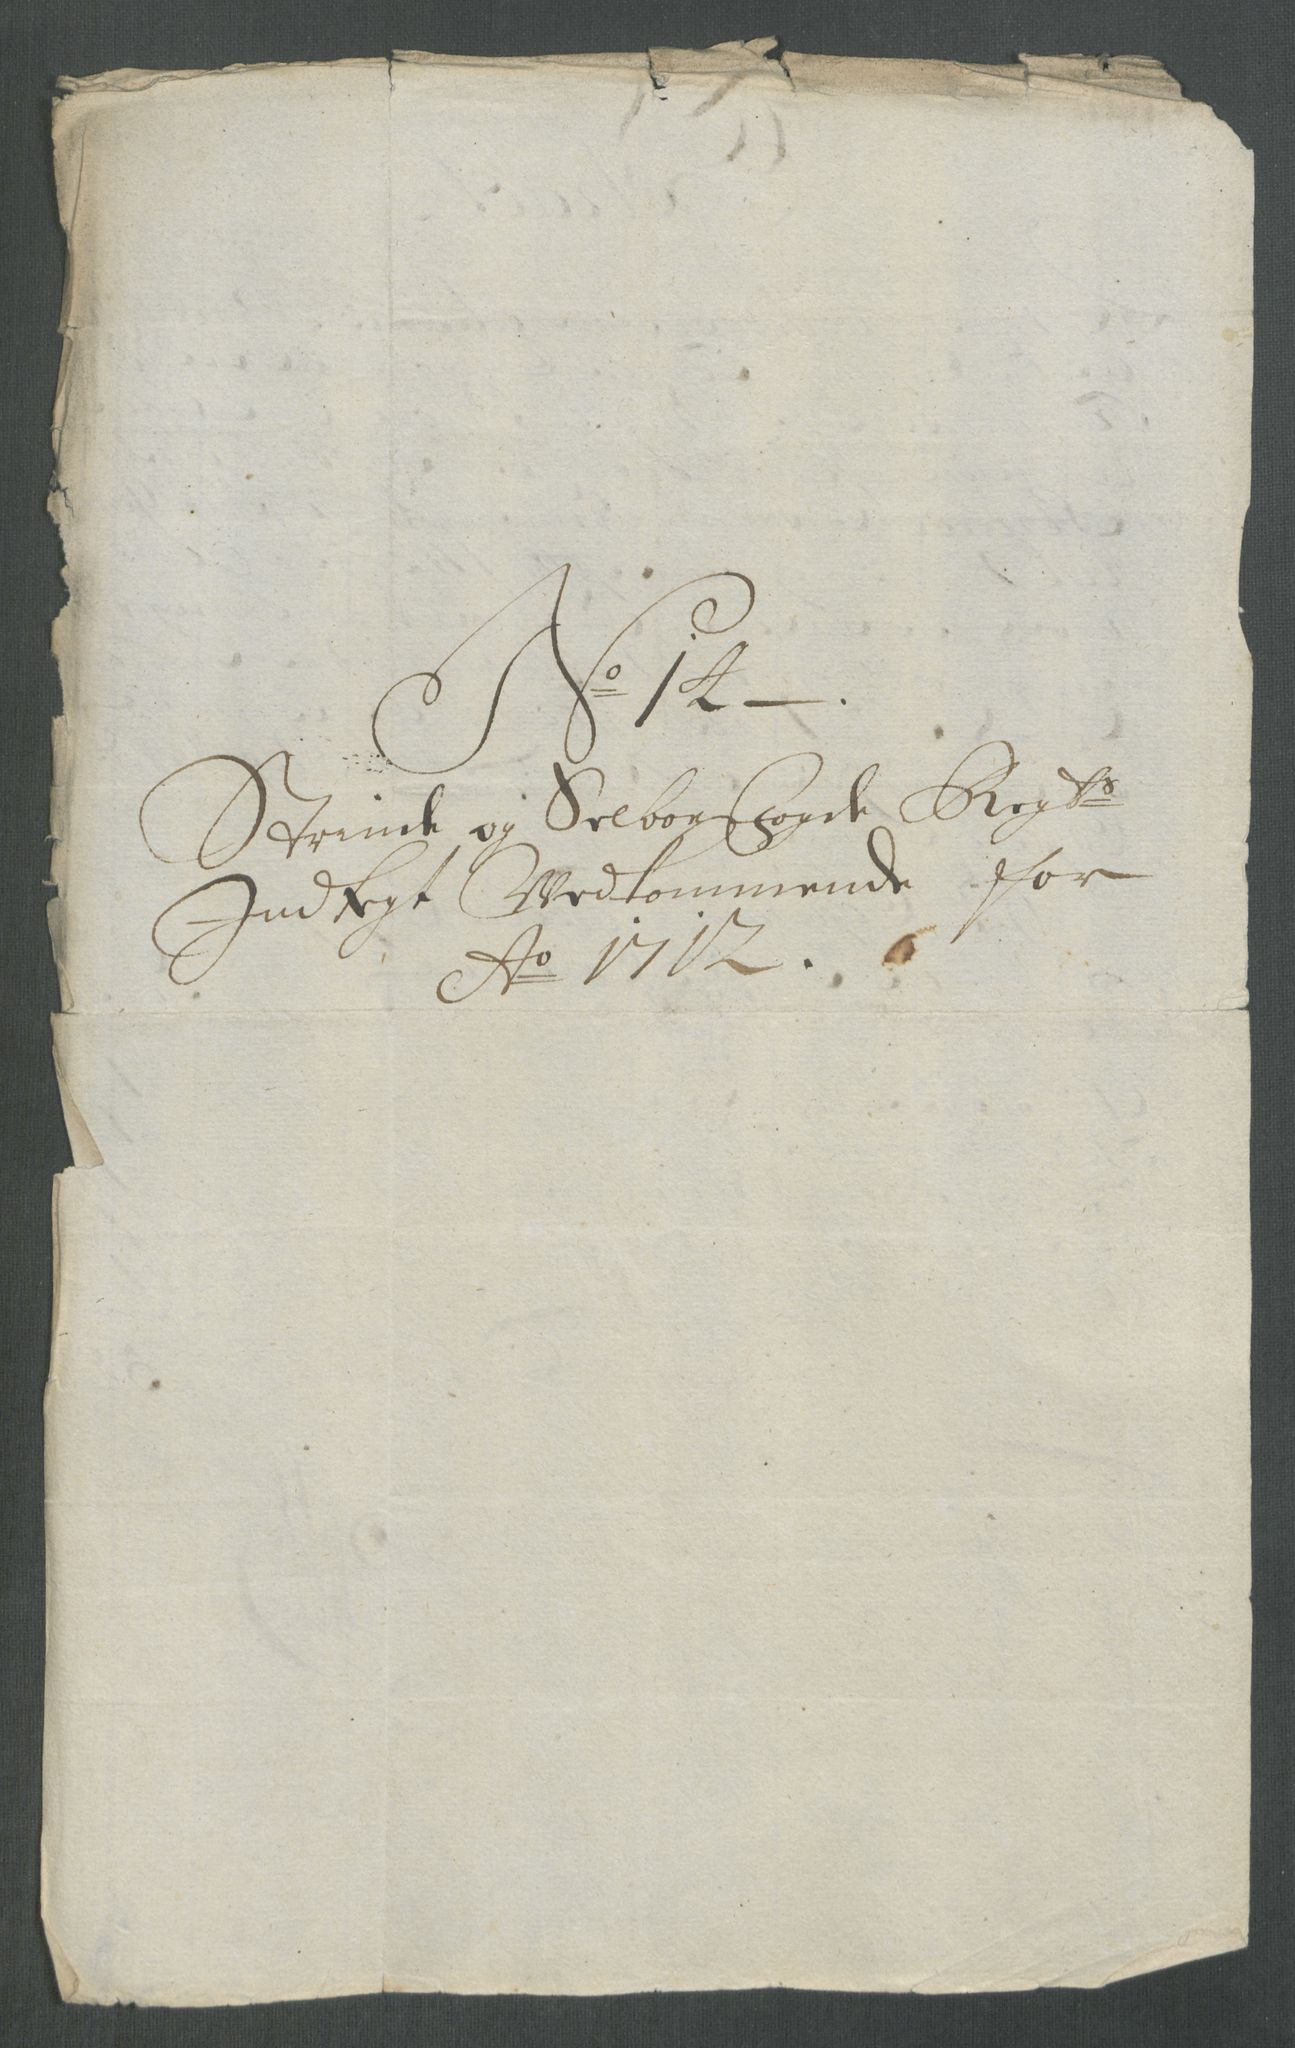 No 14 —.
Strinde og Selboe Fogde Regks
Indtegt Vedkommende for
Ao 1712.